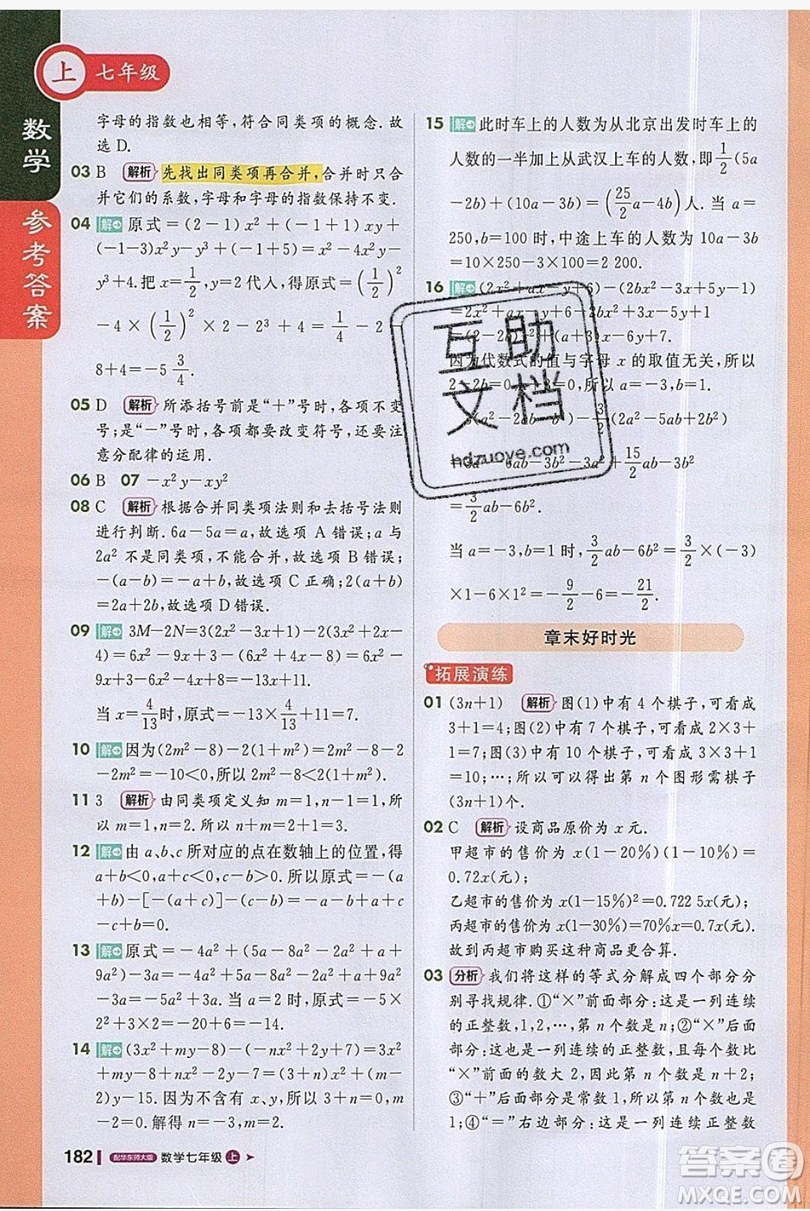 上 七年级
数学
参考答案
字母的指数也相等,符合同类项的概念.故
选 D.
03 B 解析 先找出同类项再合并,合并时只合
并它们的系数,字母和字母的指数保持不变.
04 解 原式=(2-1)x²+(-1+1)xy+
(-1-3)x²y-y³+(-1+5)=x²-4x²y-
y³+4.把 x=1/2,y=2代入,得原式=(1/2)²
-4×(1/2)²×2-2³+4=1/4-2-
8+4=-5 3/4.
05 D 解析 所添括号前是“+”号时,各项不变
号;是“-”号时,各项都要改变符号,还要注
意分配律的运用.
06 B 07 -x²y-xy²
08 C 解析 根据合并同类项法则和去括号法则
进行判断.6a-5a=a,故选项 A 错误;a 与
2a² 不是同类项,不能合并,故选项 B 错误;
-(a-b)=-a+b,故选项 C 正确;2(a+b)
=2a+2b,故选项 D 错误.
09 解 3M-2N=3(2x²-3x+1)-2(3x²+2x
-4)=6x²-9x+3-6x²-4x+8=-13x+11.
当 x=4/13时,原式=-13×4/13+11=7.
10 解 因为(2m²-8)-2(1+m²)=2m²-8-2
-2m²=-10<0,所以 2m²-8<2(1+m²).
11 3 解析 由同类项定义知 m=1,n-1=1,所
以 m=1,n=2.所以 m+n=2+1=3.
12 解 由 a、b、c 所对应的点在数轴上的位置,得
a+b<0,-a+c>0,b-c<0.所以原式=-(a
+b)-[-(-a+c)]-[-(b-c)]=-a-b-
a+c+b-c+2a=0.
13 解 原式=-4a²+(5a-8a²-2a²+a+
9a²)-3a=-4a²+(-a²+6a)-3a=-4a²-
a²+6a-3a=-5a²+3a.当 a=2 时,原式=-5×
2²+3×2=-20+6=-14.
14 解 (3x²+my-8)-(-nx²+2y+7)=3x²
+my-8+nx²-2y-7=(3+n)x²+(m-
2)y-15.因为不含有 x、y,所以 3+n=0,m-
2=0.解得 n=-3,m=2.
15 解 此时车上的人数为从北京出发时车上的
人数的一半加上从武汉上车的人数,即1/2(5a
-2b)+(10a-3b)=(25/2a-4b)人.当 a=
250,b=100 时,中途上车的人数为 10a-3b
=10×250-3×100=2 200.
16 解 (2x²+ax-y+6)-(2bx²-3x+5y-1)
=2x²+ax-y+6-2bx²+3x-5y+1
因为代数式的值与字母 x 的取值无关,所以
6b²-3a²+15/2ab
=3/2ab-6b².
当 a=-3,b=1时,3/2ab-6b²=3/2×(-3)
×1-6×1²=-9/2-6=-21/2.
章末好时光
拓展演练
01 (3n+1) 解析 图(1)中有 4 个棋子,可看成
3+1=4;图(2)中有 7 个棋子,可看成 2×3+
1=7;图(3)中有 10 个棋子,可看成 3×3+
1=10;…;所以可以得出第 n 个图形需棋子
(3n+1)个.
02 C 解析 设商品原价为 x 元.
甲超市的售价为 x(1-20%)(1-10%)=
0.72x(元);
乙超市的售价为 x(1-15%)²=0.722 5x(元);
丙超市的售价为 x(1-30%)=70%x=0.7x(元).
故到丙超市购买更合算.
03 分析 我们将这样的等式分解成四个部分分
别寻找规律.①“×”前面部分:这是一列连续
的正整数,1,2,…,第 n 个数是 n;②“×”后面
部分:这是一列连续的正整数,且每一个数比
①中对应的数大 2,因此第 n 个数是 n+2;
③“+”后面部分:这是一列不变的数,都是 1;
④“=”右边部分:这是一列从 2 开始的连续正整数
互助
文档
hdzuoye.com
182 配华东师大版 数学七年级 上
答案圈
MXQE.COM